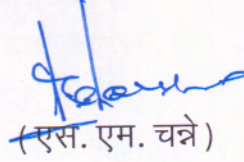 (एस. एम. चन्ने)